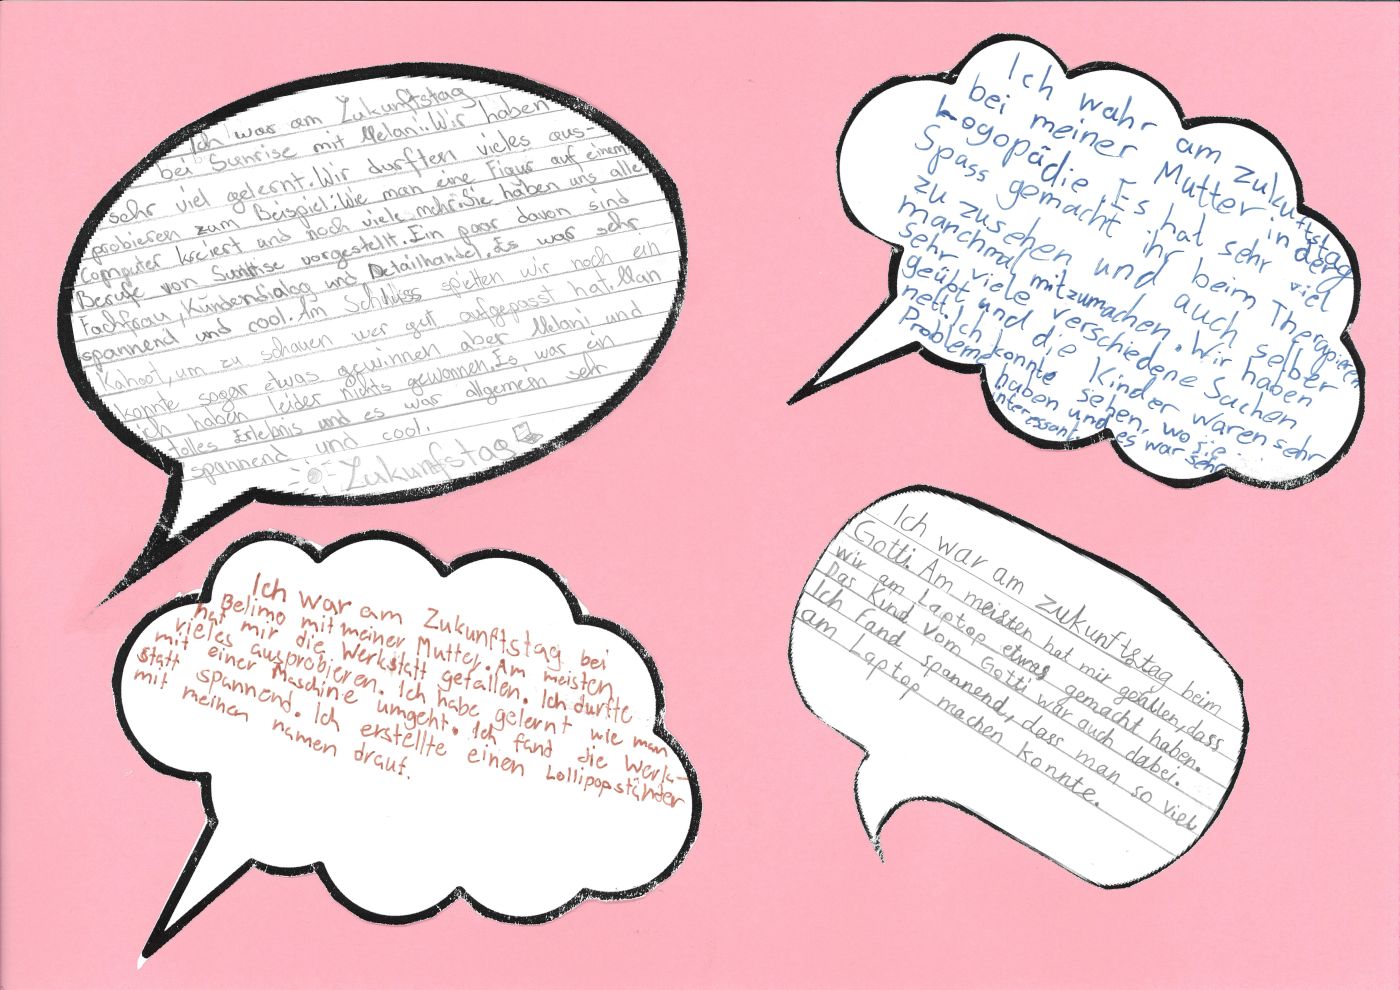 Ich war am Zukunftstag
bei Sunrise mit Melani. Wir haben
sehr viel gelernt. Wir durften vieles aus-
probieren zum Beispiel: Wie man eine Figur auf einem
Computer kreiert und noch viele mehr. Sie haben uns alle
Berufe von Sunrise vorgestellt. Ein paar davon sind
Fachfrau, Kundendialog und Detailhandel. Es war sehr
spannend und cool. Am Schluss spielten wir noch ein
Kahoot, um zu schauen wer gut aufgepasst hat. Man
konnte sogar etwas gewinnen aber Melani und
ich haben leider nichts gewonnen. Es war ein
tolles Erlebnis und es war allgemein sehr
spannend und cool!
Zukunftstag
Ich wahr am Zukuftstag
bei meiner Mutter in der
Logopädie. Es hat sehr viel
Spass gemacht ihr beim Therapieren
zu zusehen und auch selber
marchmal mitzumachen. Wir haben
sehr viele verschiedene Suchen
geübt und die Kinder waren sehr
nett. Ich konnte sehen, wo sie
Probleme haben und es war sehr
interessant.
Ich war am Zukunftstag bei
Belimo mit meiner Mutter. Am meisten
hat mir die Werkstatt gefallen. Ich durfte
vieles ausprobieren. Ich habe gelernt wie man
mit einer Maschine umgeht. Ich fand die Werk-
statt spannend. Ich erstellte einen Lollipopständer
mit meinen namen drauf.
Ich war am Zukunftstag beim
Gotti. Am meisten hat mir gefallen, dass
wir am Laptop etwas gemacht haben.
Das Kind vom Gotti war auch dabei.
Ich fand spannend, dass man so viel
am Laptop machen konnte.